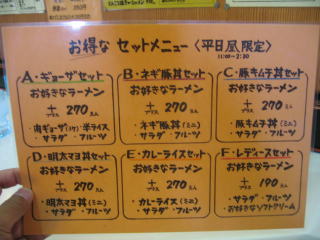 お得な セットメニュー〈平日昼限定〉
11:00〜2:30
A・ギョーザセット
お好きなラーメン
+プラス 270えん
・肉ギョーザ ・半ライス
・サラダ ・フルーツ
B・ネギ豚丼セット
お好きなラーメン
+プラス 270えん
・ネギ豚丼(ミニ)
・サラダ ・フルーツ
C・豚キムチ丼セット
お好きなラーメン
+プラス 270えん
・豚キムチ丼(ミニ)
・サラダ ・フルーツ
D・明太マヨ丼セット
お好きなラーメン
+プラス 270えん
・明太マヨ丼(ミニ)
・サラダ ・フルーツ
E・カレーライスセット
お好きなラーメン
+プラス 270えん
・カレーライス(ミニ)
・サラダ ・フルーツ
F・レディースセット
お好きなラーメン
+プラス 190えん
・サラダ ・フルーツ
・お好きなソフトクリーム